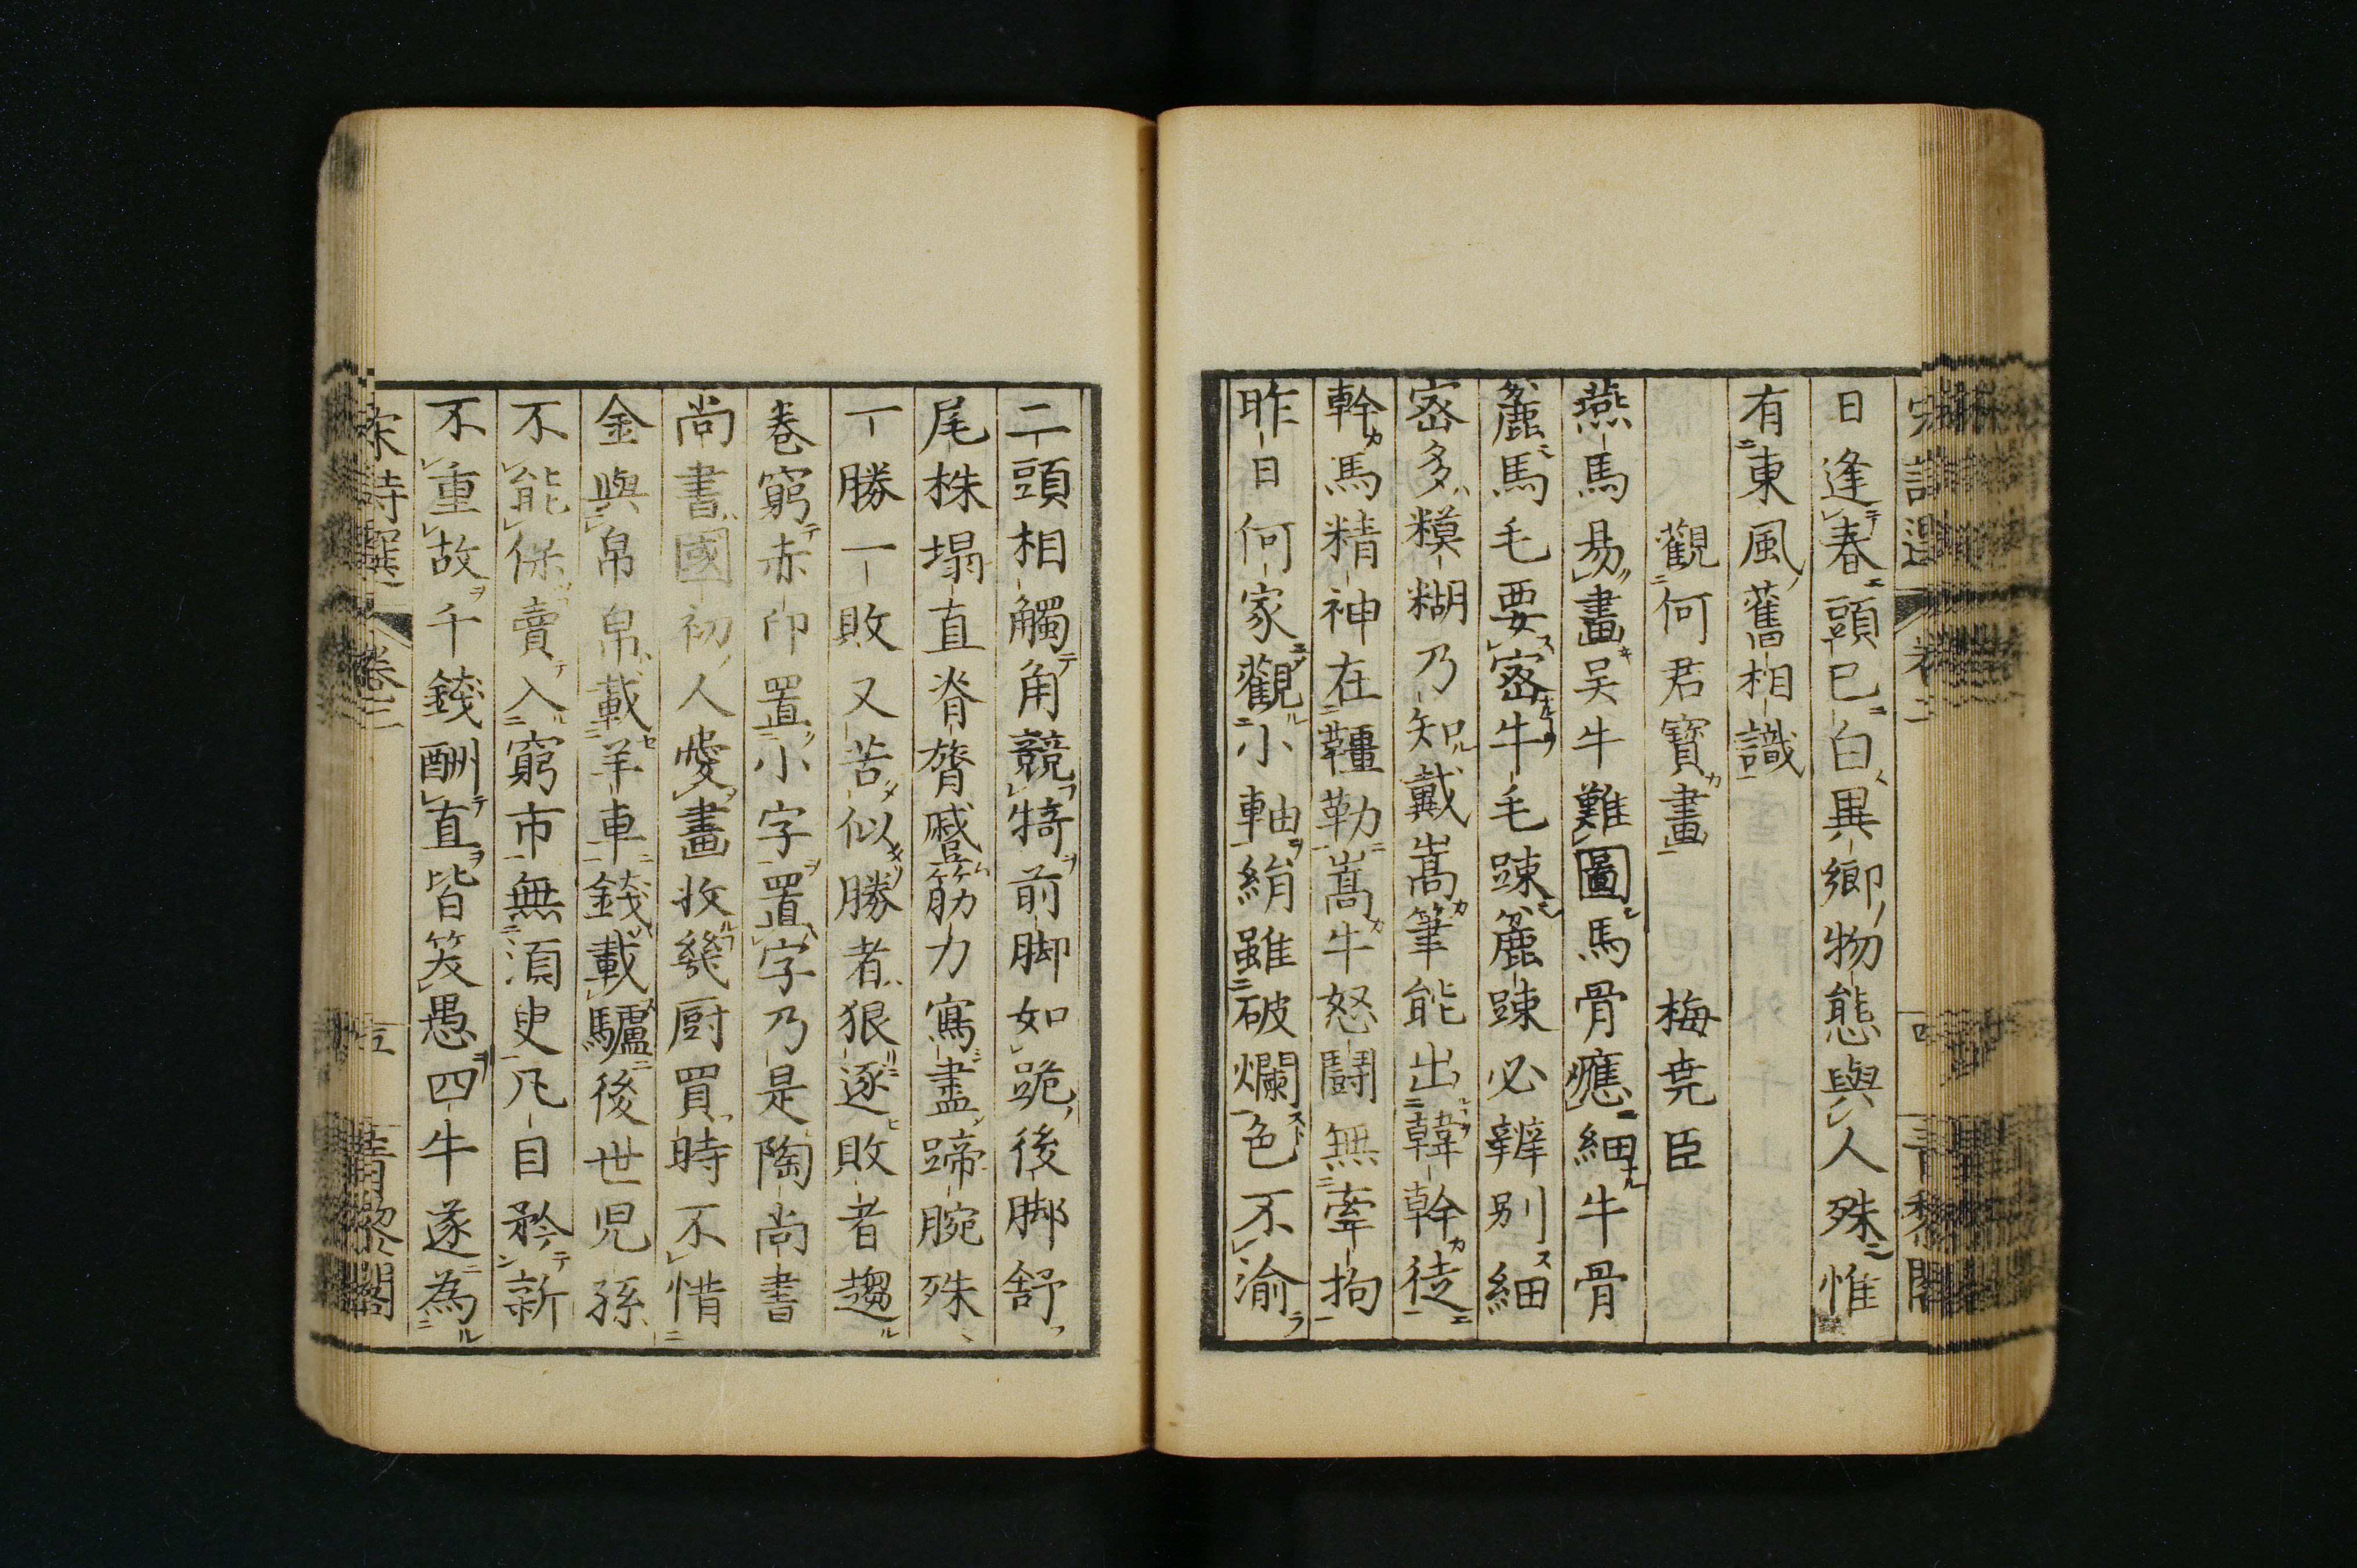 日逢春頭已白異鄉物態與人殊惟
有東風舊相識
觀何君寶畫 梅堯臣
燕馬易畫吴牛難圖馬骨應細牛骨
麁馬毛要密牛毛踈麁踈必辨别細
密多糢糊乃知戴嵩筆能出韓幹徒
幹馬精神在韁勒嵩牛怒鬭無牽拘
昨日何家觀小軸絹雖破爛色不渝
二頭相觸角競犄前脚如跪後脚舒
尾株塌直脊膂蹙筋力寫盡蹄腕殊
一勝一敗又苦似勝者狠逐敗者趨
卷窮赤印置小字置字乃是陶尚書
尚書國初人愛畫收幾厨買時不惜
金與帛帛載羊車錢載驢後世兒孫
不能保賣入窮市無須臾凡目矜新
不重故千錢酬直皆笑愚四牛遂為
宋詩選 卷三 五 青藜閣